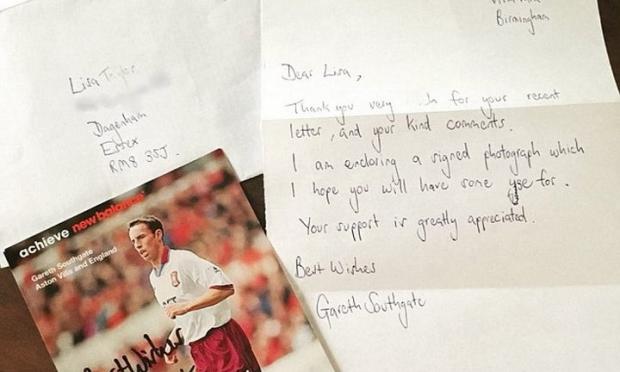 Lisa Taylor
Dagenham
Essex
RM8 3SJ.
achieve new balance
Gareth Southgate
Aston Villa and England
Best Wishes
Villa Park
Birmingham
Dear Lisa,
Thank you very for your recent
letter, and your kind comments.
I am enclosing a signed photograph which
I hope you will have some use for.
Your support is greatly appreciated.
Best Wishes
Gareth Southgate